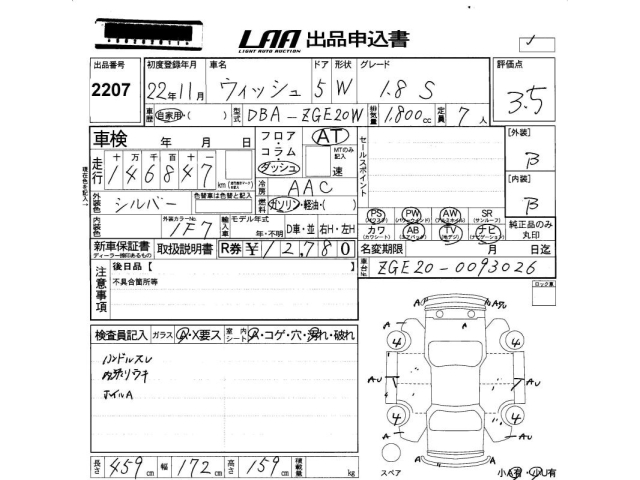 LAA 出品申込書
LIGHT AUTO AUCTION
出品番号 初度登録年月 車名 ドア 形状 グレード 評価点
2207 22年11月 ウィッシュ 5 W 1.8 S 3.5
車歴 自家用・( ) 型式 DBA-ZGE20W 排気量 1,800cc 定員 7人
車検 年 月 日
フロア・コラム・ダッシュ AT MTのみ記入 速
セールスポイント
[外装] B
走行 十万千百十 146847 km
[内装] B
冷房 AAC
外装色 シルバー 色替車は色替と記入
燃料 ガソリン・軽油・( )
内装色 外装カラーNo. 1F7
輸入車 モデル年式 年・不明 D車・並 右H・左H
PS PW AW SR (サンルーフ)
カワ AB TV ナビ
純正品のみ丸印
新車保証書 取扱説明書 R券 ¥12,780
名変期限 月 日迄
車台No. ZGE20-0093026
注意事項 後日品【 】
不具合箇所等
ロック車
検査員記入 ガラス A・X要ス 室内シート A・コゲ・穴・汚れ・破れ
ハンドルスレ
内張リウキ
ホイルA
A A
4 4
AU AU
4 4
A A
A A
スペア
小A有・小U有
長さ 459cm 幅 172cm 高さ 159cm 積載量 kg